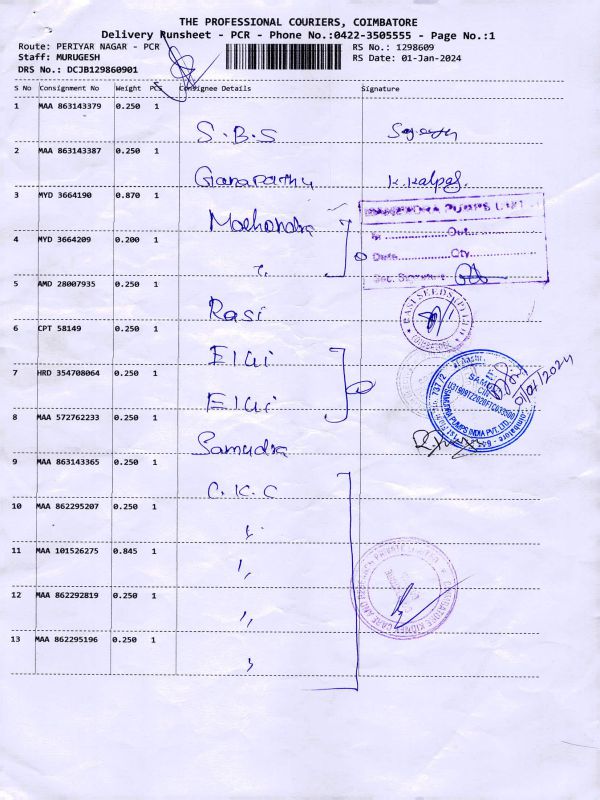 THE PROFESSIONAL COURIERS, COIMBATORE
Delivery Runsheet - PCR - Phone No.:0422-3505555 - Page No.:1
Route: PERIYAR NAGAR - PCR RS No.: 1298609
Staff: MURUGESH RS Date: 01-Jan-2024
DRS No.: DCJB129860901
S No Consignment No Weight PCS Consignee Details Signature
1 MAA 863143379 0.250 1
S.B.S
2 MAA 863143387 0.250 1
Ganapathy K.Kalpa
3 MYD 3664190 0.870 1
Mahendra
PUMPS
In Out
4 MYD 3664209 0.200 1
Date Qty
"
Sec. Signature
5 AMD 28007935 0.250 1
Rasi
RASI SEEDS (P) LTD
COIMBATORE
6 CPT 58149 0.250 1
Elgi
7 HRD 354708064 0.250 1
Elgi
01/01/2024
MAHENDRA PUMPS INDIA PVT. LTD.
8 MAA 572762233 0.250 1
Samudra
9 MAA 863143365 0.250 1
C.K.C
10 MAA 862295207 0.250 1
"
11 MAA 101526275 0.845 1
"
COIMBATORE KIDNEY CARE AND RESEARCH PRIVATE LIMITED
12 MAA 862292819 0.250 1
"
13 MAA 862295196 0.250 1
"